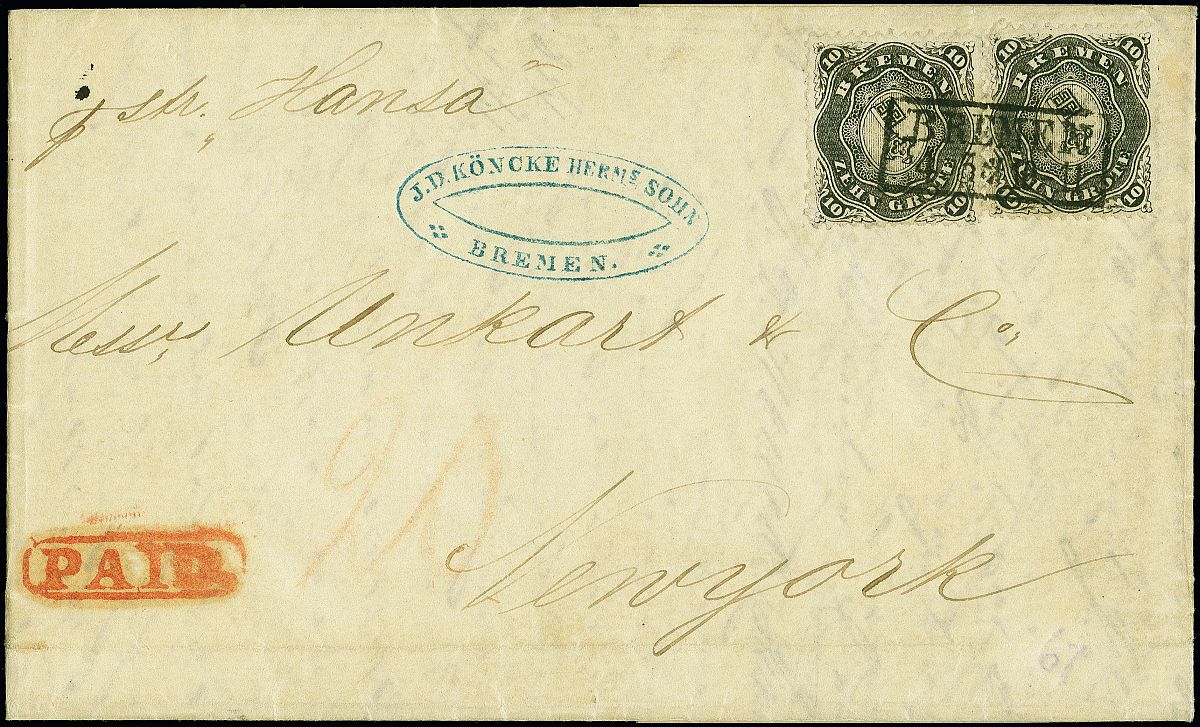 10 10
BREMEN
ZEHN GROTE
10 10
10 10
BREMEN
ZEHN GROTE
10 10
BREMEN
pr str. "Hansa"
J. D. KÖNCKE HERMS SOHN
BREMEN.
Messrs Unkart & Co.
20
Newyork
PAID.
67